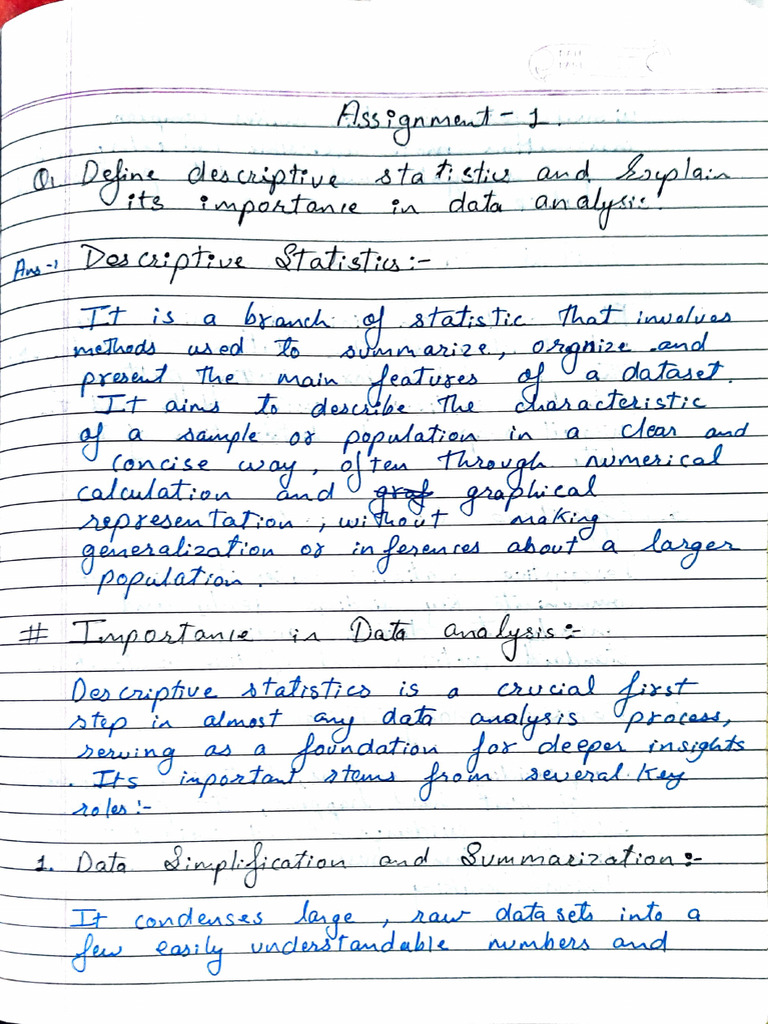 Assignment - 1.
Q1. Define descriptive statistics and Explain
its importance in data analysis.
Ans-1 Descriptive Statistics:-
It is a branch of statistic that involves
methods used to summarize, orgnize and
present the main features of a dataset.
It aims to describe the characteristic
of a sample or population in a clear and
concise way, often through numerical
calculation and graf graphical
representation, without making
generalization or inferences about a larger
population.
# Importance in Data analysis:-
Descriptive statistics is a crucial first
step in almost any data analysis process,
serving as a foundation for deeper insights
. Its important stems from several key
roles:-
1. Data Simplification and Summarization:-
It condenses large, raw data sets into a
few easily understandable numbers and